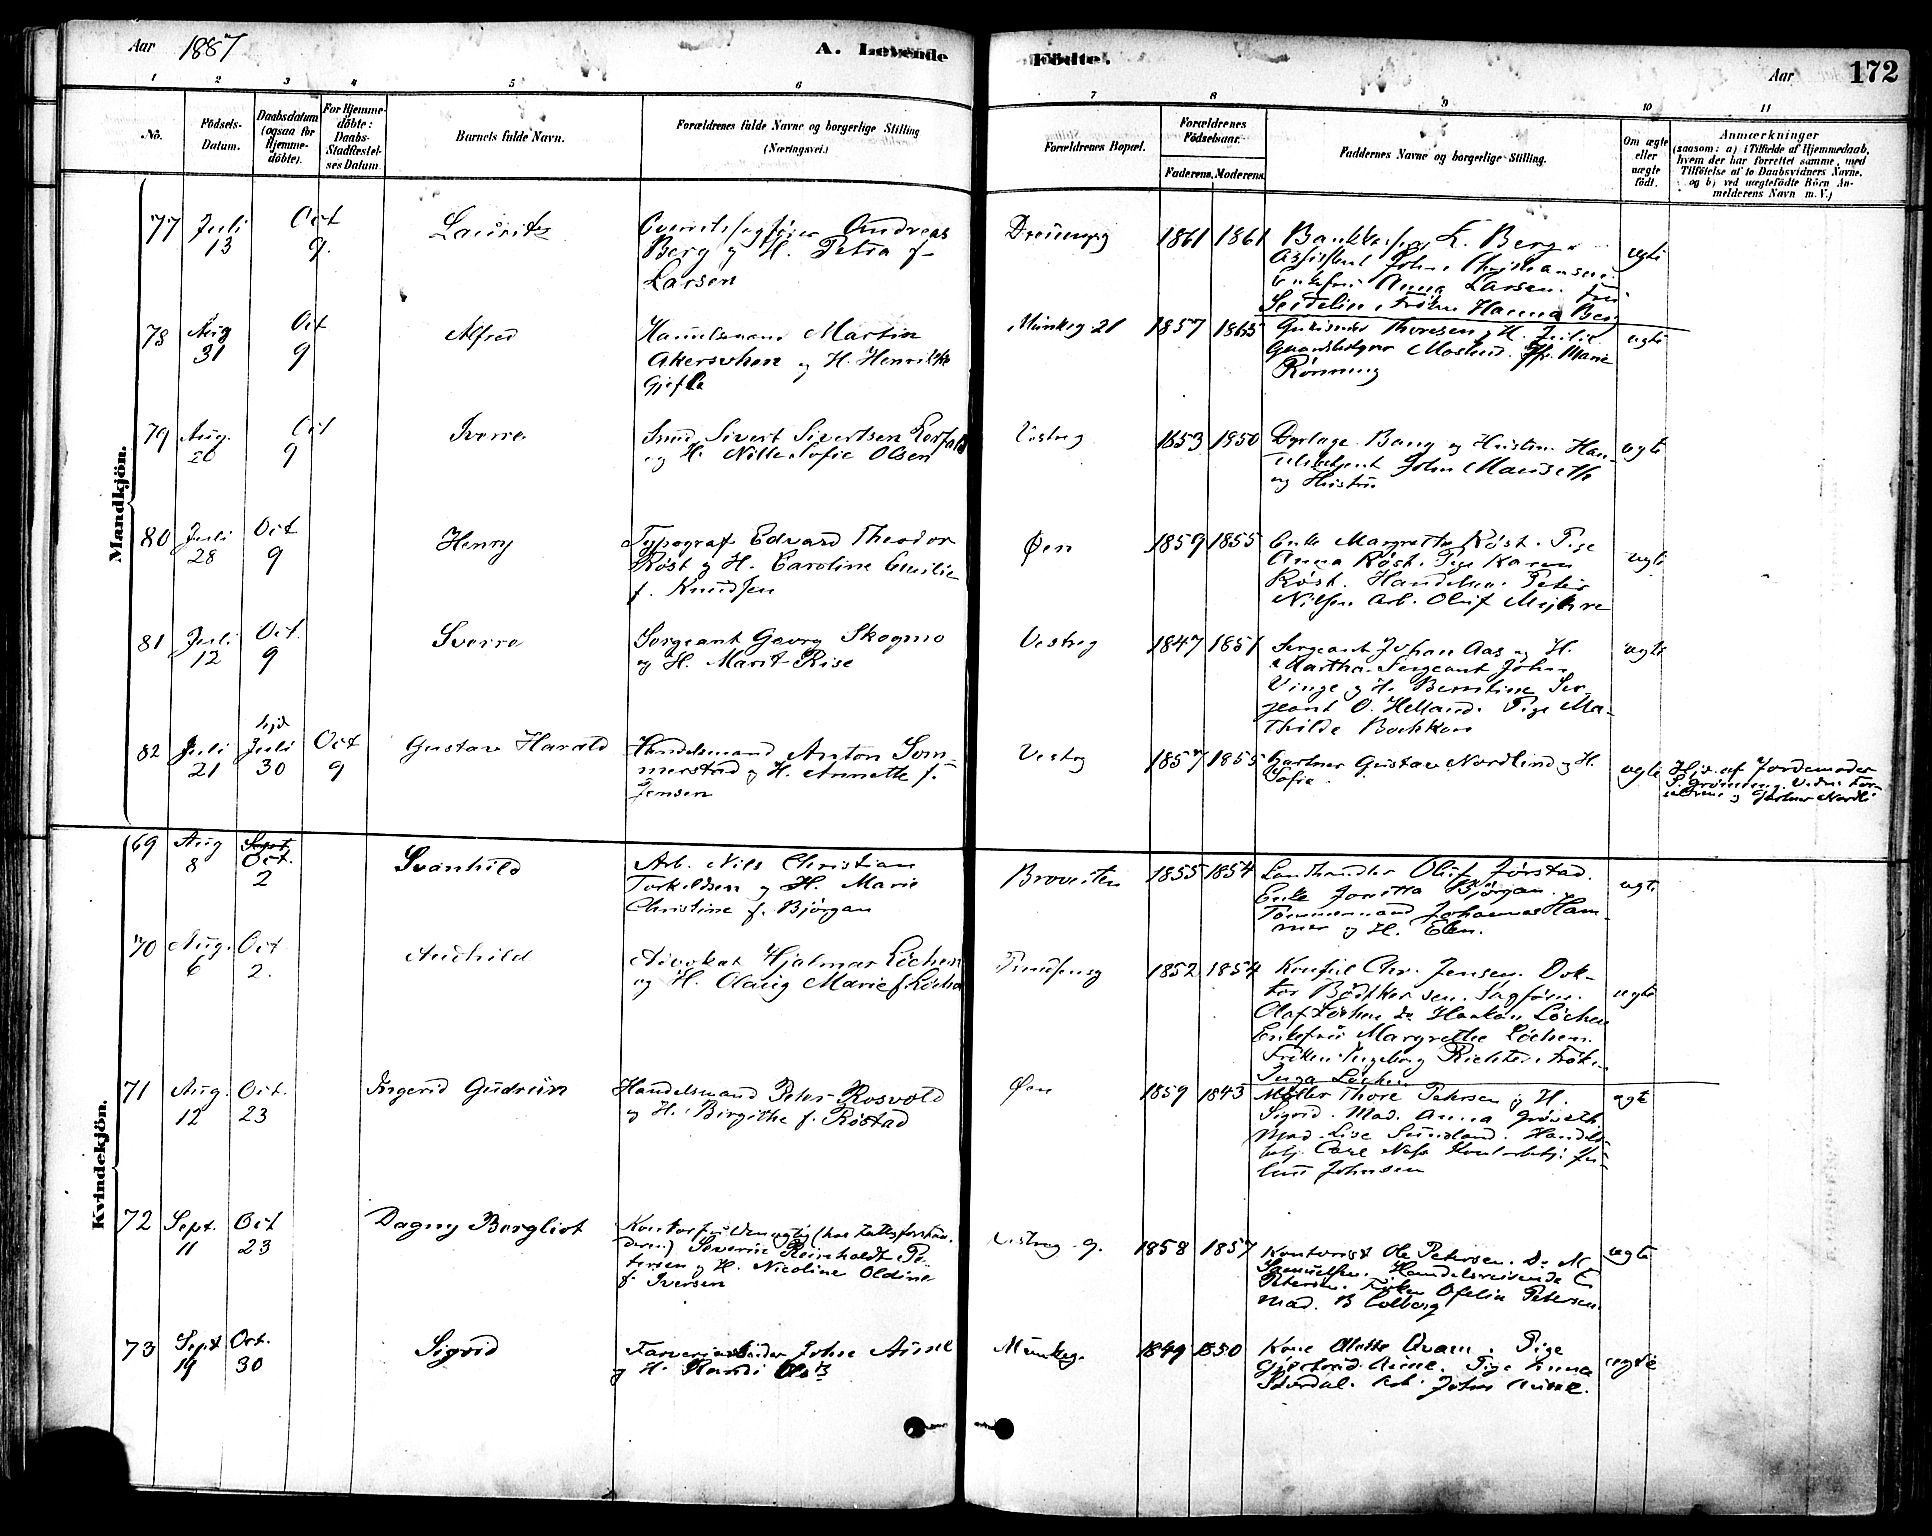 Aar 1887
A. Levende
Födte.
Aar 172
1 2 3 4 5 6 7 8 9 10 11
No.
Födsels-
Datum.
Daabsdatum
(ogsaa for
Hjemme-
döbte).
For Hjemme-
döbte:
Daabs-
Stadfæstel-
ses Datum.
Barnets fulde Navn.
Forældrenes fulde Navne og borgerlige Stilling
(Næringsvei.)
Forældrenes Bopæl.
Forældrenes
Födselsaar.
Faderens. Moderens.
Faddernes Navne og borgerlige Stilling.
Om ægte
eller
uægte
födt.
Anmærkninger
(saasom: a) i Tilfælde af Hjemmedaab,
hvem der har forrettet samme, med
Tilföielse af to Daabsvidners Navne,
og b) ved uægtefödte Börn An-
melderens Navn m. V.)
Mandkjön.
77 Juli 13 Oct 9. Lauritz
Andreas
Berg og H. Petra f.
Larsen
1861 1861
L. Berg
Assistent John Christiansen
Enkefru Anna Larsen. Fru
Seidelin, Frøken Hanna Berg
ægte
78 Aug 31 Oct 9 Alfred
Handelsmand Martin
og H. Henrikke
Gjefle
Munkeg 21 1857 1865
Thoresen og H. Julie
Marie
Rönning
ægte
79 Aug. 26 Oct 9 Sverre
Smed Sivert Sivertsen
og H. Sofie Olsen
Vestreg 1853 1850
Dyrlæge Bang og Hustru. Han-
John
og Hustru
ægte
80 Juli 28 Oct 9 Henry
Typograf Edvard Theodor
Røst og H. Caroline Emilie
f. Knudsen
Øen 1859 1855
Enke Margrethe Røst. Pige
Anna Røst. Pige Karen
Røst. Handelsm. Peter
Nilsen Arb. Oluf Myhre
ægte
81 Juli 12 Oct. 9 Sverre
Sergeant Georg Skogmo
og H. Marit Rise
Vestreg 1847 1851
Sergeant Johan Aas og H.
Martha. Sergeant John
Vinge og H. Berntine Ser-
jeant O. Helland. Pige Ma-
thilde Bockkan
ægte
82 Juli 21 hjd Juli 30 Oct 9 Gustav Harald
Handelsmand Anton Som-
merstad og H. Annette f.
Jensen
Vestreg 1857 1855
Gartner Gustav Nordlind og H.
Sofie
ægte
Hjd. af Jordemoder
Kvindekjön.
69 Aug 8 Sept. Oct. 2 Svanhild
Arb. Nils Christian
Torkildsen og H. Marie
Christine f. Björgan
Brovesten 1855 1854
Landhandler Oluf Jørstad.
Enke Jonetta Björgan.
Tömmermand Johannes Ham-
mer og H. Elen.
ægte
70 Aug. 6 Oct 2. Audhild
Advokat Hjalmar Löchen
og H. Olaug Marie f. Löchen
1852 1854
Konsul Chr. Jensen. Dok-
tor Bödtker sen. Sagförer
Olaf Löchen do Haakon Löchen
Enkefru Margrethe Löchen.
Fröken Ingeborg Richter. Frök-
Inga Löchen
ægte
71 Aug. 12 Oct. 23 Ingerid Gudrun
Handelsmand Peter Rosvold
og H. Birgithe f. Röstad
Øen 1859 1843
Møller Thore Petersen og H.
Sigrid. Mad. Anna
Mad. Lise Sundland. Handels-
betj. Carl Næss Kontorbetj. Ju-
lius Johnsen
ægte
72 Sept. 11 Oct 23 Dagny Bergliot
Severin Reinholdt Pe-
tersen og H. Nicoline Oldine
f. Iversen
1858 1857
Kontorist Ole Petersen. Do M
Samuelsen. Handelsreisende C
Petersen. Fröken Ofelia Petersen
Mad. B Colberg
ægte
73 Sept 19 Oct. 30 Sigrid
Farveriarbeider John Aune
og H. Randi
Munkeg. 1849 1850
Kone Mette Qvam. Pige
Gjertrud Aune. Pige Anna
Stordal. Arb. John Aune.
ægte